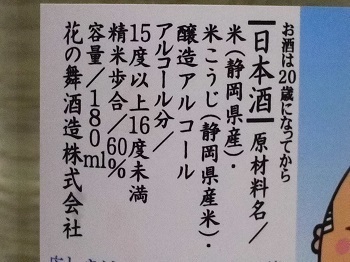 お酒は20歳になってから
日本酒 原材料名／
米(静岡県産)・
米こうじ(静岡県産米)・
醸造アルコール
アルコール分／
15度以上16度未満
精米歩合／60%
容量／180ml
花の舞酒造株式会社